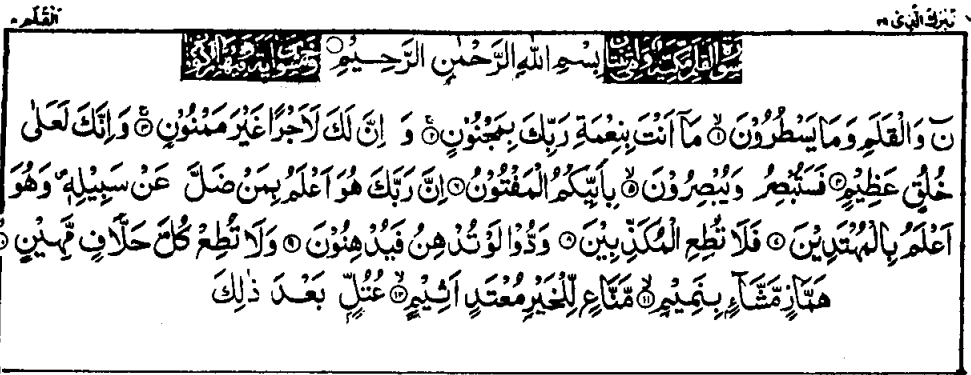 تبرك الذی ۲۹
القلم
سورة القلم مكية وهي ثنتان بِسْمِ اللهِ الرَّحْمٰنِ الرَّحِيْمِ وخمسون اية وفيها
نٓ وَالْقَلَمِ وَمَا يَسْطُرُوْنَ ۱ مَآ اَنْتَ بِنِعْمَةِ رَبِّكَ بِمَجْنُوْنٍ ۲ وَ اِنَّ لَكَ لَاَجْرًا غَيْرَ مَمْنُوْنٍ ۳ وَاِنَّكَ لَعَلٰى
خُلُقٍ عَظِيْمٍ ۴ فَسَتُبْصِرُ وَيُبْصِرُوْنَ ۵ بِاَيِّكُمُ الْمَفْتُوْنُ ۶ اِنَّ رَبَّكَ هُوَ اَعْلَمُ بِمَنْ ضَلَّ عَنْ سَبِيْلِهٖ وَهُوَ
اَعْلَمُ بِالْمُهْتَدِيْنَ ۷ فَلَا تُطِعِ الْمُكَذِّبِيْنَ ۸ وَدُّوْا لَوْ تُدْهِنُ فَيُدْهِنُوْنَ ۹ وَلَا تُطِعْ كُلَّ حَلَّافٍ مَّهِيْنٍ
هَمَّازٍ مَّشَّآءٍ بِنَمِيْمٍ ۱۱ مَّنَّاعٍ لِّلْخَيْرِ مُعْتَدٍ اَثِيْمٍ ۱۲ عُتُلٍّ بَعْدَ ذٰلِكَ